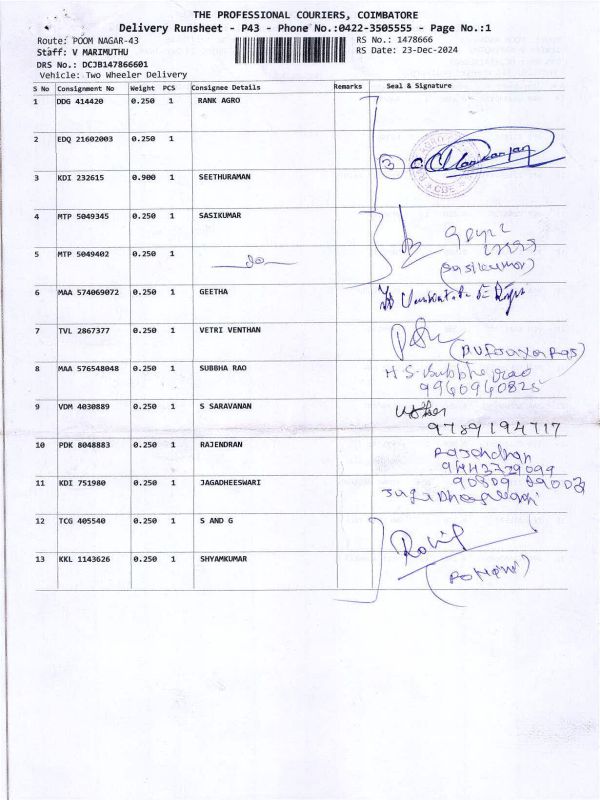 THE PROFESSIONAL COURIERS, COIMBATORE
Delivery Runsheet - P43 - Phone No.:0422-3505555 - Page No.:1
Route: POOM NAGAR-43 RS No.: 1478666
Staff: V MARIMUTHU RS Date: 23-Dec-2024
DRS No.: DCJB147866601
Vehicle: Two Wheeler Delivery
S No Consignment No Weight PCS Consignee Details Remarks Seal & Signature
1 DDG 414420 0.250 1 RANK AGRO
2 EDQ 21602003 0.250 1
3
3 KDI 232615 0.900 1 SEETHURAMAN
4 MTP 5049345 0.250 1 SASIKUMAR
5 MTP 5049402 0.250 1
(Sasikumar)
6 MAA 574069072 0.250 1 GEETHA
7 TVL 2867377 0.250 1 VETRI VENTHAN
8 MAA 576548048 0.250 1 SUBBHA RAO
H S. Subbha rao
9960940825
9 VDM 4030889 0.250 1 S SARAVANAN
9789194717
10 PDK 8048883 0.250 1 RAJENDRAN
11 KDI 751980 0.250 1 JAGADHEESWARI
12 TCG 405540 0.250 1 S AND G
13 KKL 1143626 0.250 1 SHYAMKUMAR